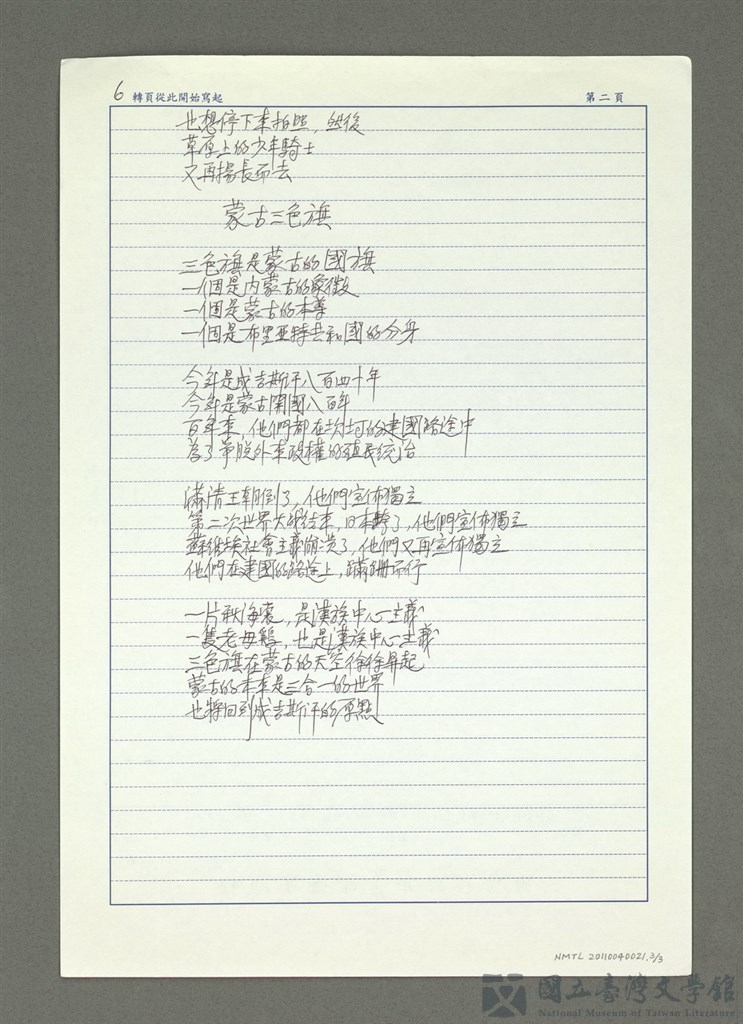 6 轉頁從此開始寫起
第二頁
也想停下來拍照，然後
草原上的少年騎士
又再揚長而去
蒙古三色旗
三色旗是蒙古的國旗
一個是內蒙古的象徵
一個是蒙古的本尊
一個是布里亞特共和國的分身
今年是成吉斯汗八百四十年
今年是蒙古開國八百年
百年來，他們都在坎坷的建國路途中
為了爭脫外來政權的殖民統治
滿清王朝倒了，他們宣佈獨立
第二次世界大戰結束，日本歸了，他們宣佈獨立
蘇維埃社會主義崩潰了，他們又再宣佈獨立
他們在建國的路途上，蹣跚而行
一片秋海棠，是漢族中心主義
一隻老母鷄，也是漢族中心主義
三色旗在蒙古的天空徐徐昇起
蒙古的未來是三合一的世界
也將回到成吉斯汗的原點
NMTL 20110040021, 3/3
國立臺灣文學館
National Museum of Taiwan Literature